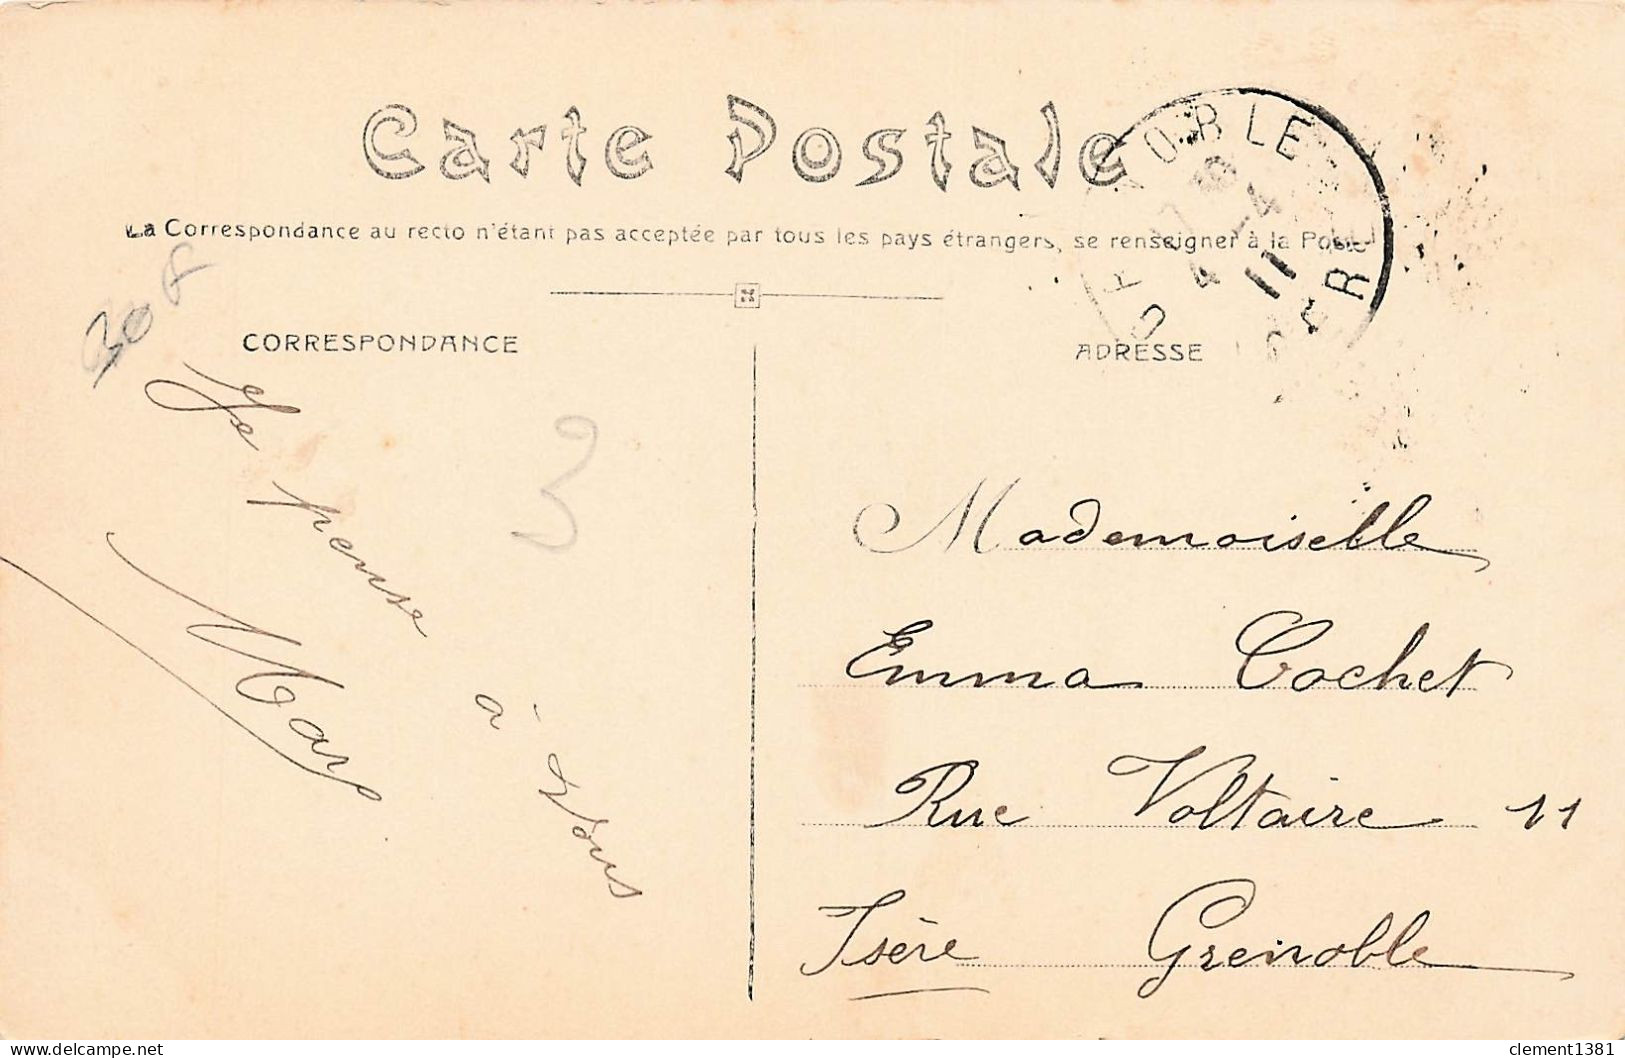 Carte Postale
La Correspondance au recto n'étant pas acceptée par tous les pays étrangers, se renseigner à la Poste
CORRESPONDANCE
ADRESSE
LE
4 - 4
11
308
3
Je pense à vous
Mary
Mademoiselle
Emma Cochet
Rue Voltaire 11
Isère Grenoble
clement1381